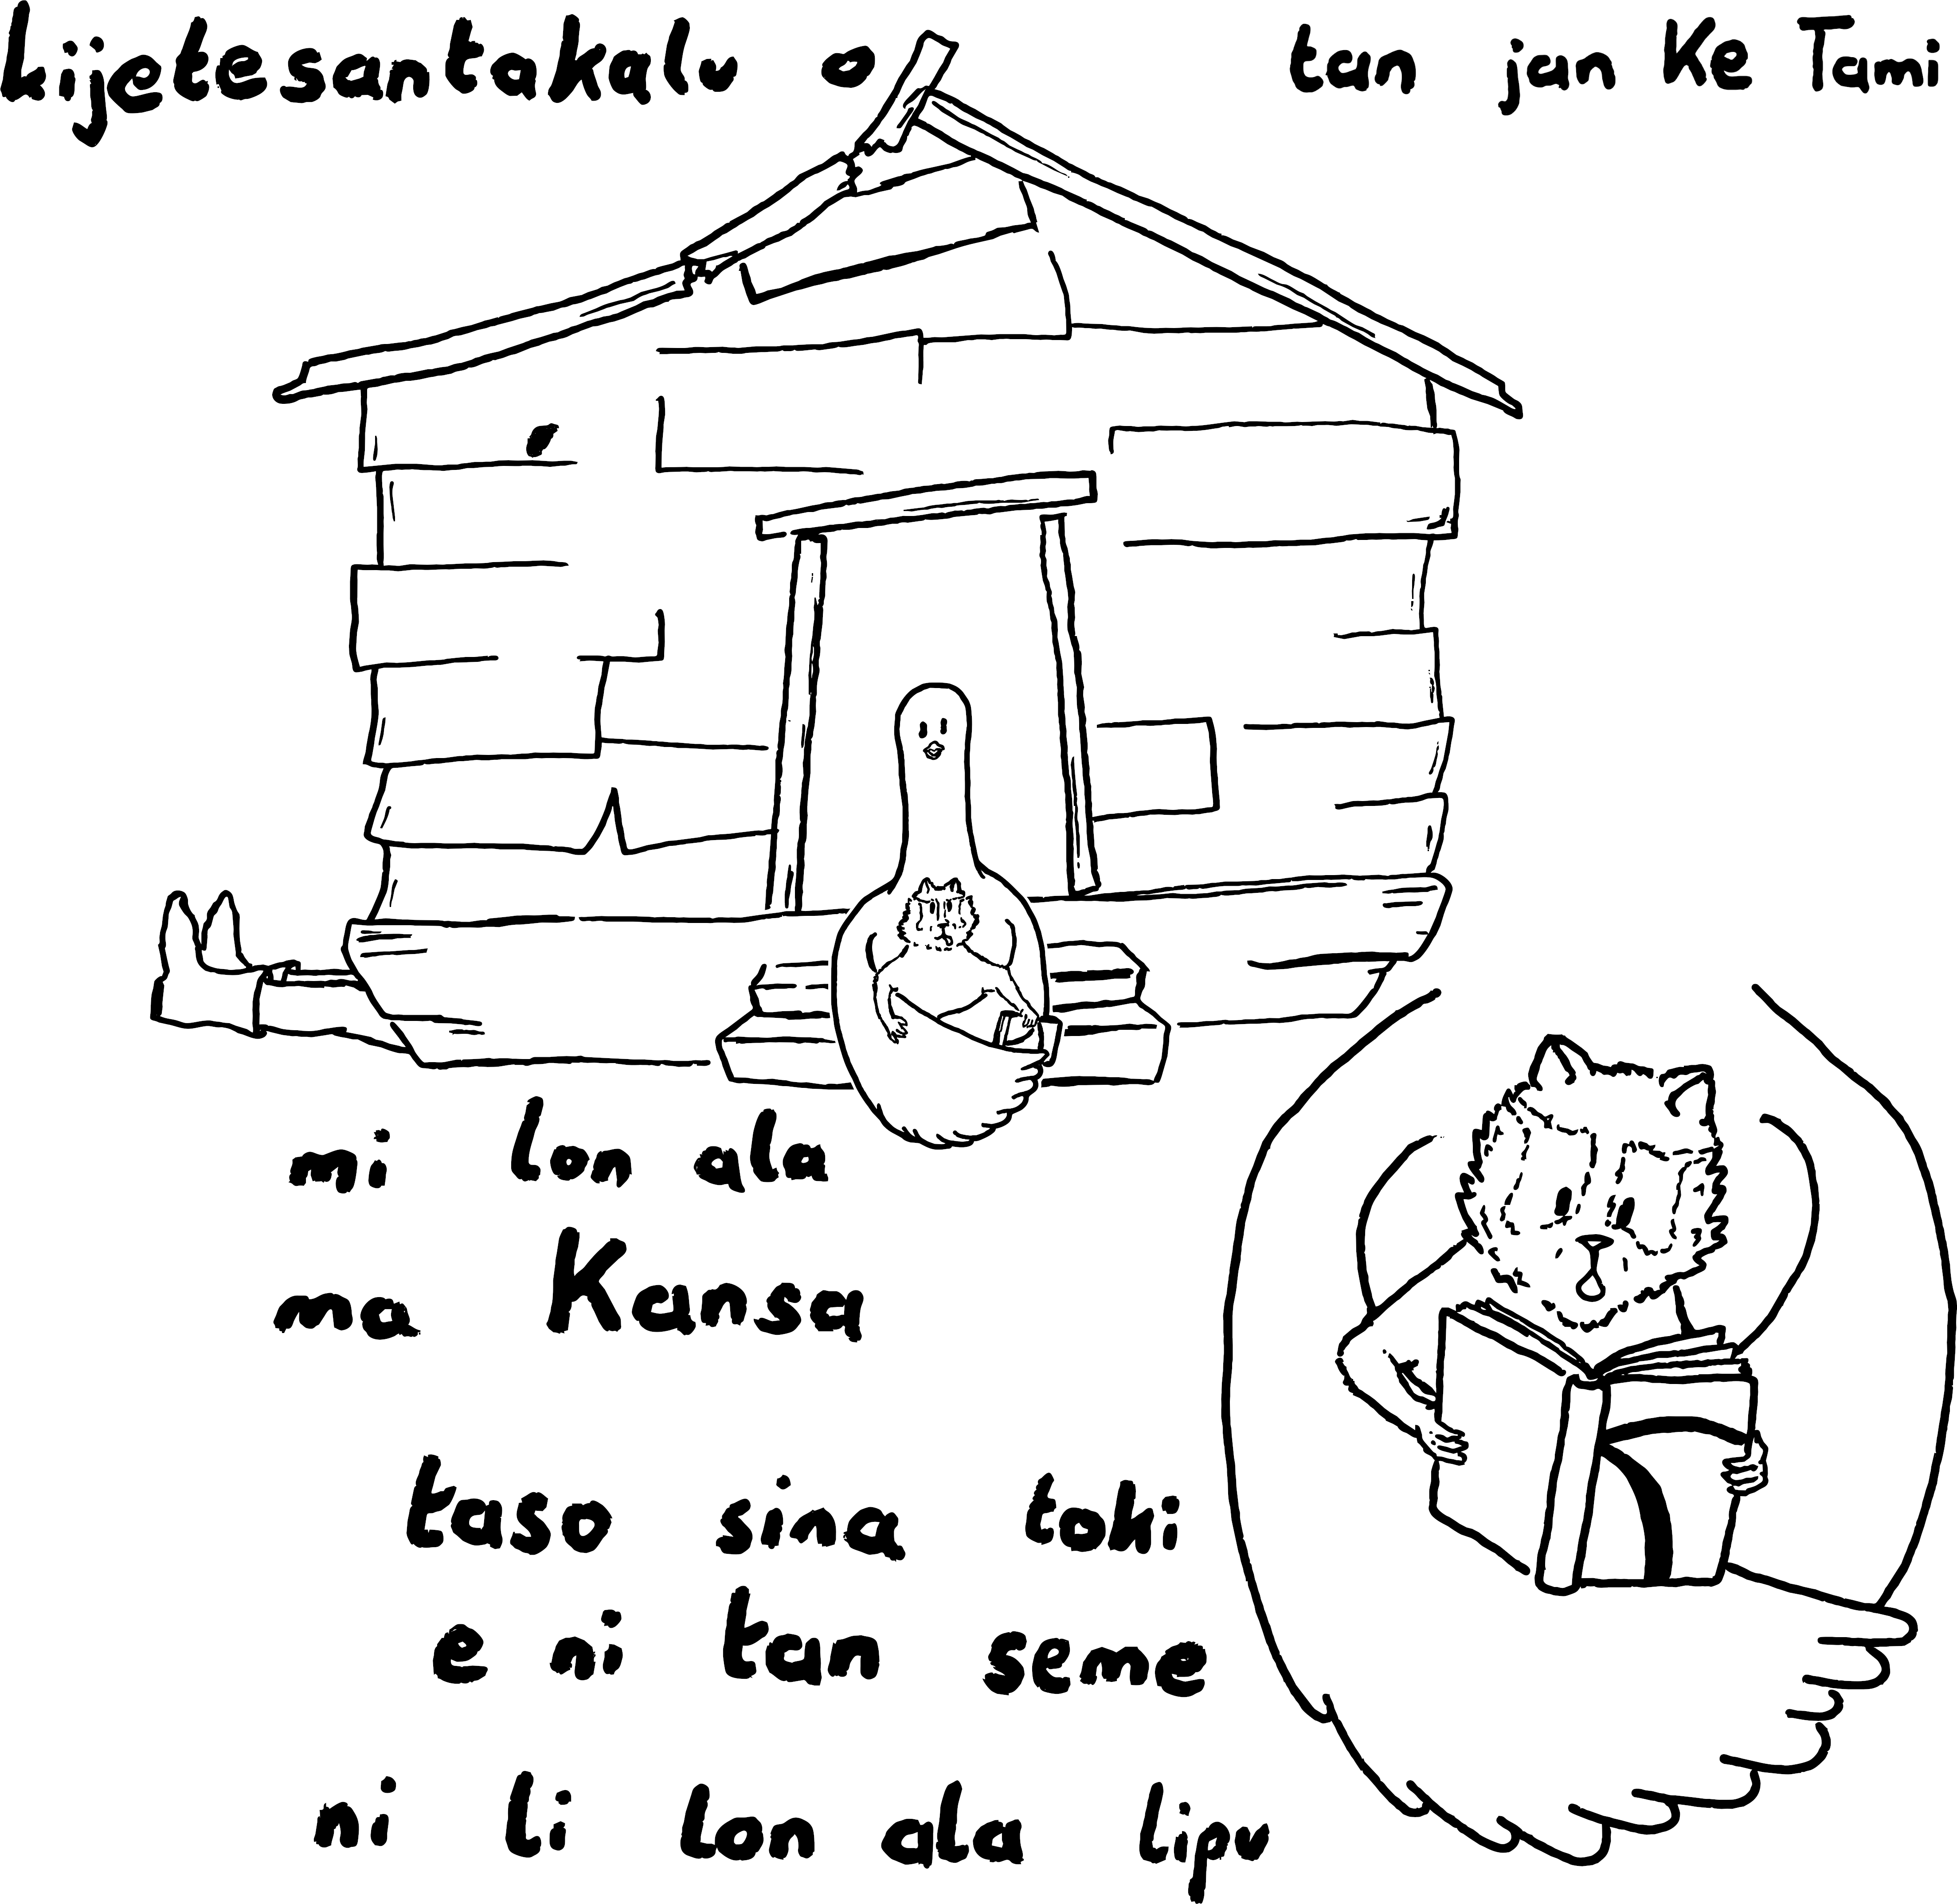 kijetesantakalu o tan jan Ke Tami
mi lon ala
ma Kansa
taso sina toki
e ni tan seme
ni li lon ala lipu